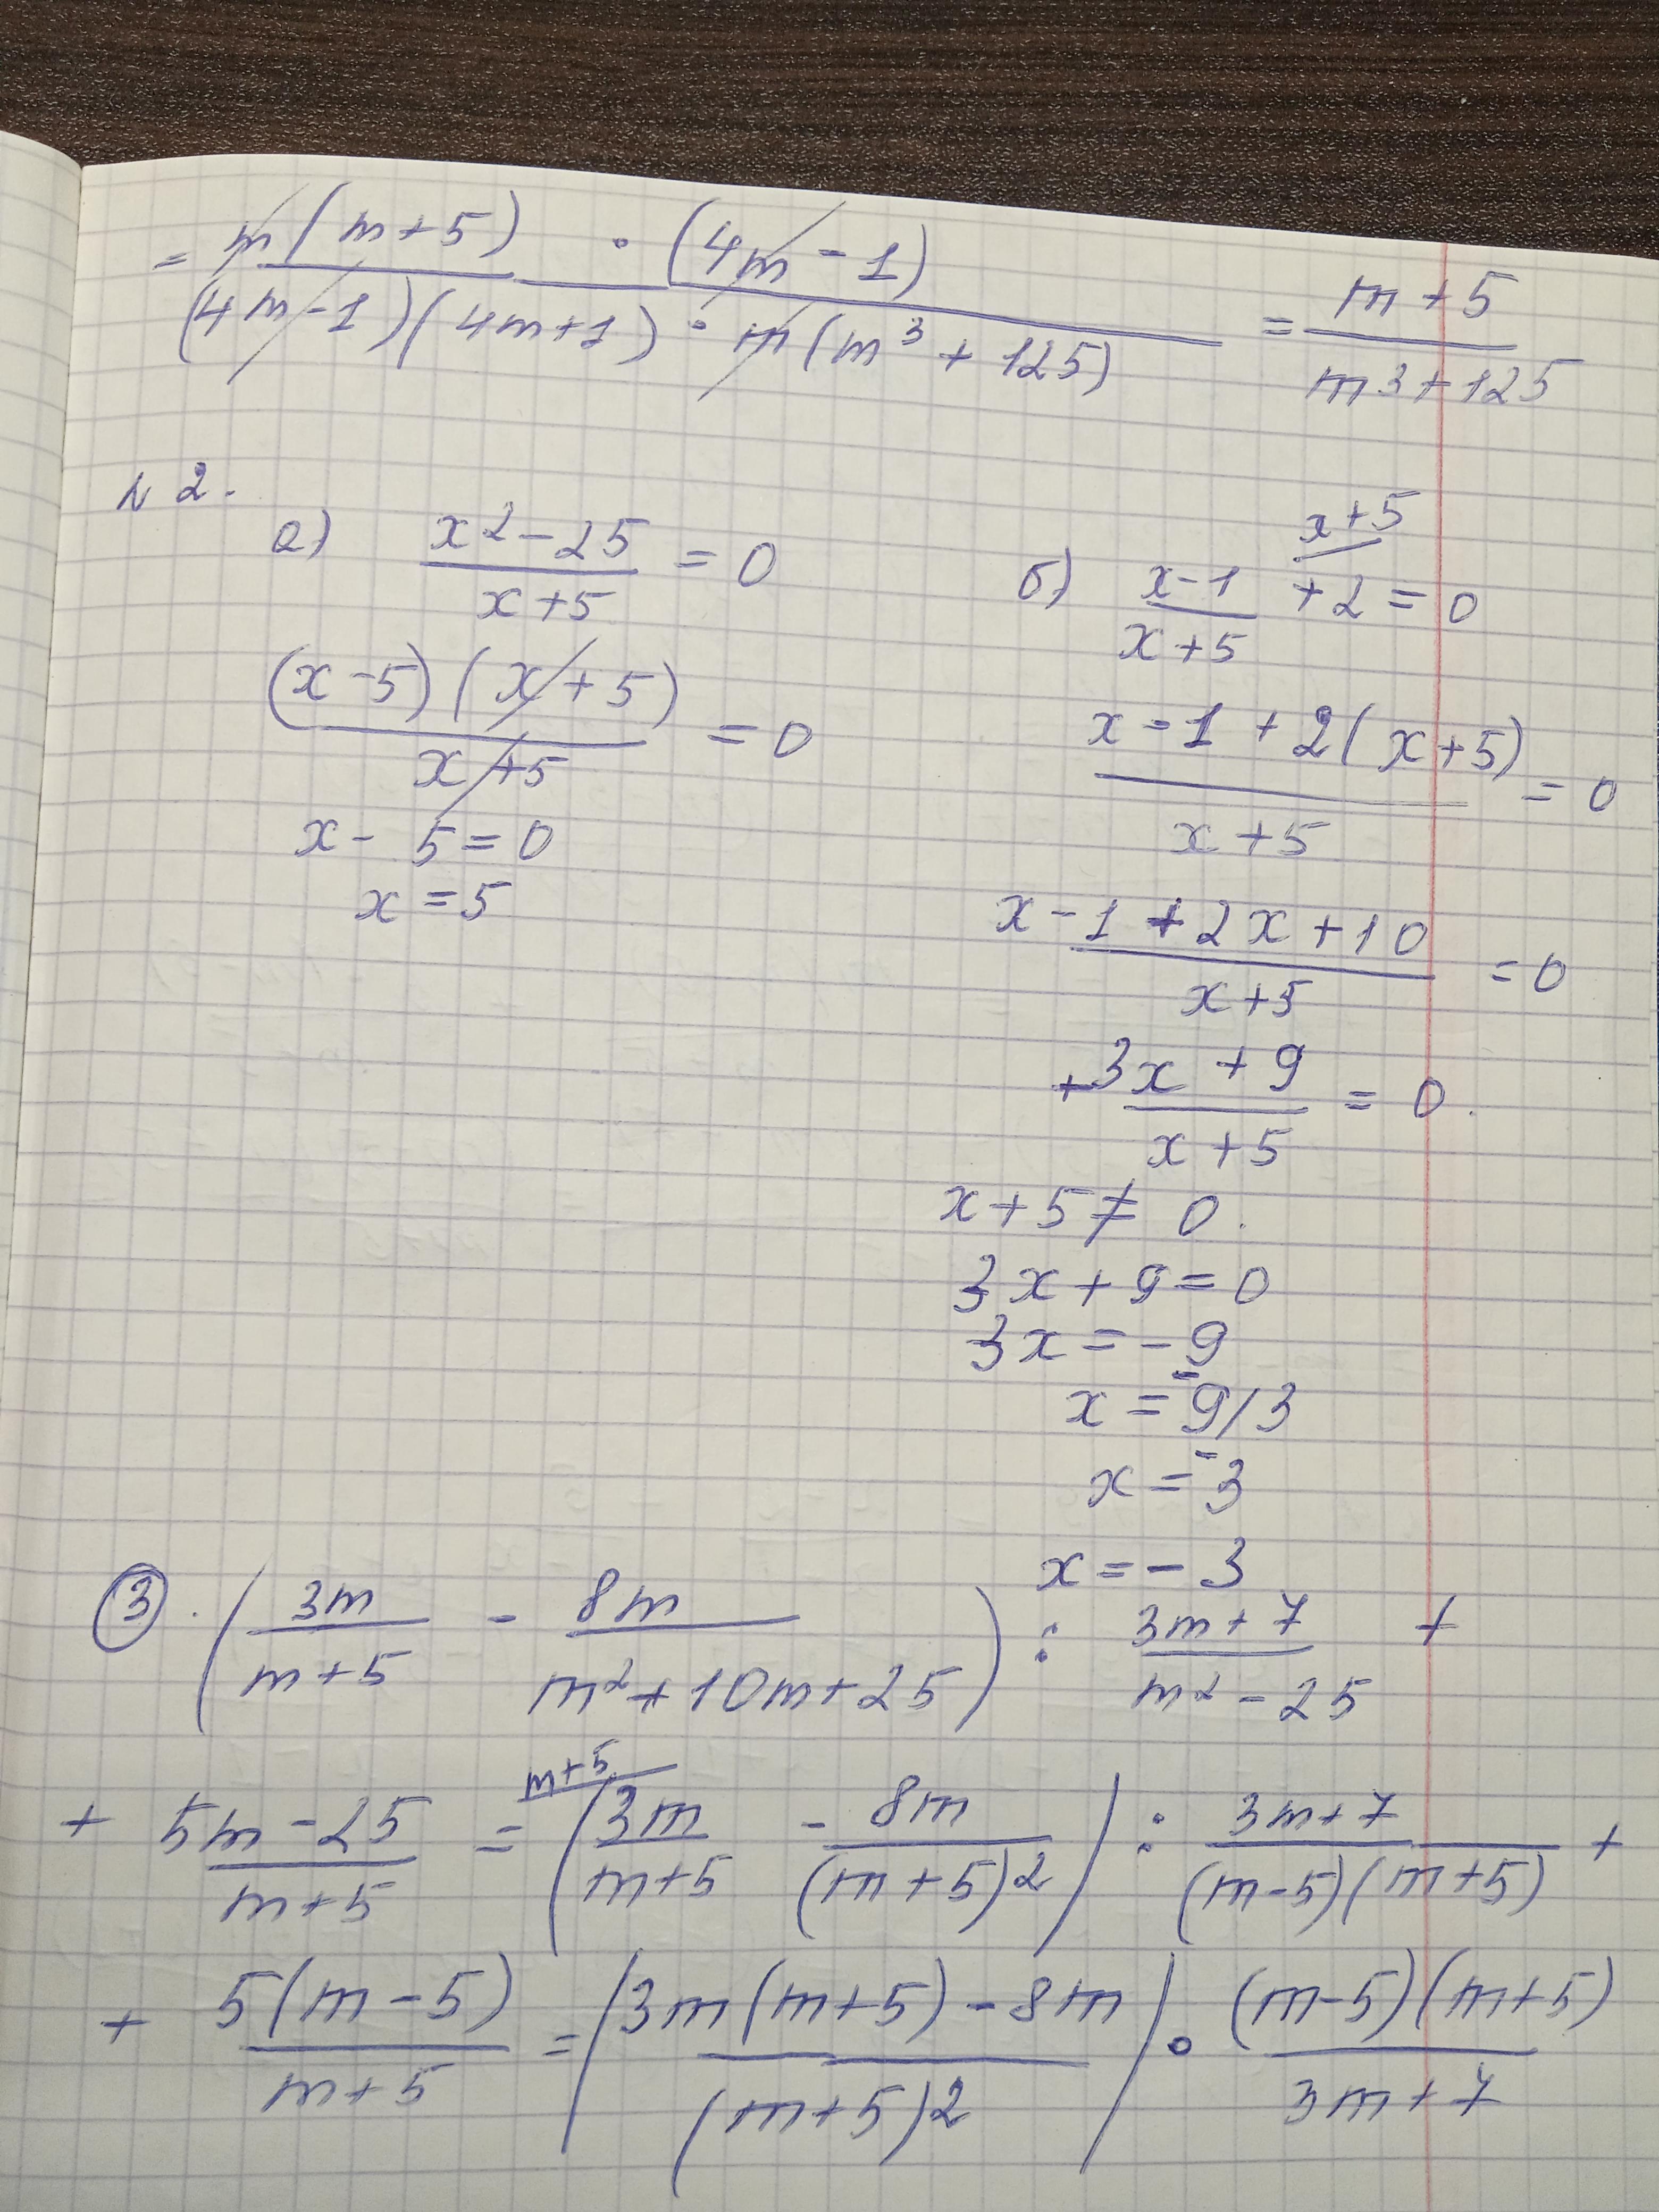 = m(m+5) · (4m-1) / (4m-1)(4m+1) · m(m³+125) = m+5 / m3+125
N 2.
а) x2-25 / x+5 = 0
(x-5)(x+5) / x+5 = 0
x- 5=0
x=5
б) x-1 / x+5 + 2 = 0
x+5
x-1+2(x+5) / x+5 = 0
x-1+2x+10 / x+5 = 0
+3x+9 / x+5 = 0.
x+5≠0.
3x+9=0
3x=-9
x=-9/3
x=-3
x=-3
③. (3m / m+5 - 8m / m²+10m+25) : 3m+7 / m2-25 +
+ 5m-25 / m+5 = m+5 (3m / m+5 - 8m / (m+5)2) : 3m+7 / (m-5)(m+5) +
+ 5(m-5) / m+5 = (3m(m+5)-8m / (m+5)2) · (m-5)(m+5) / 3m+7